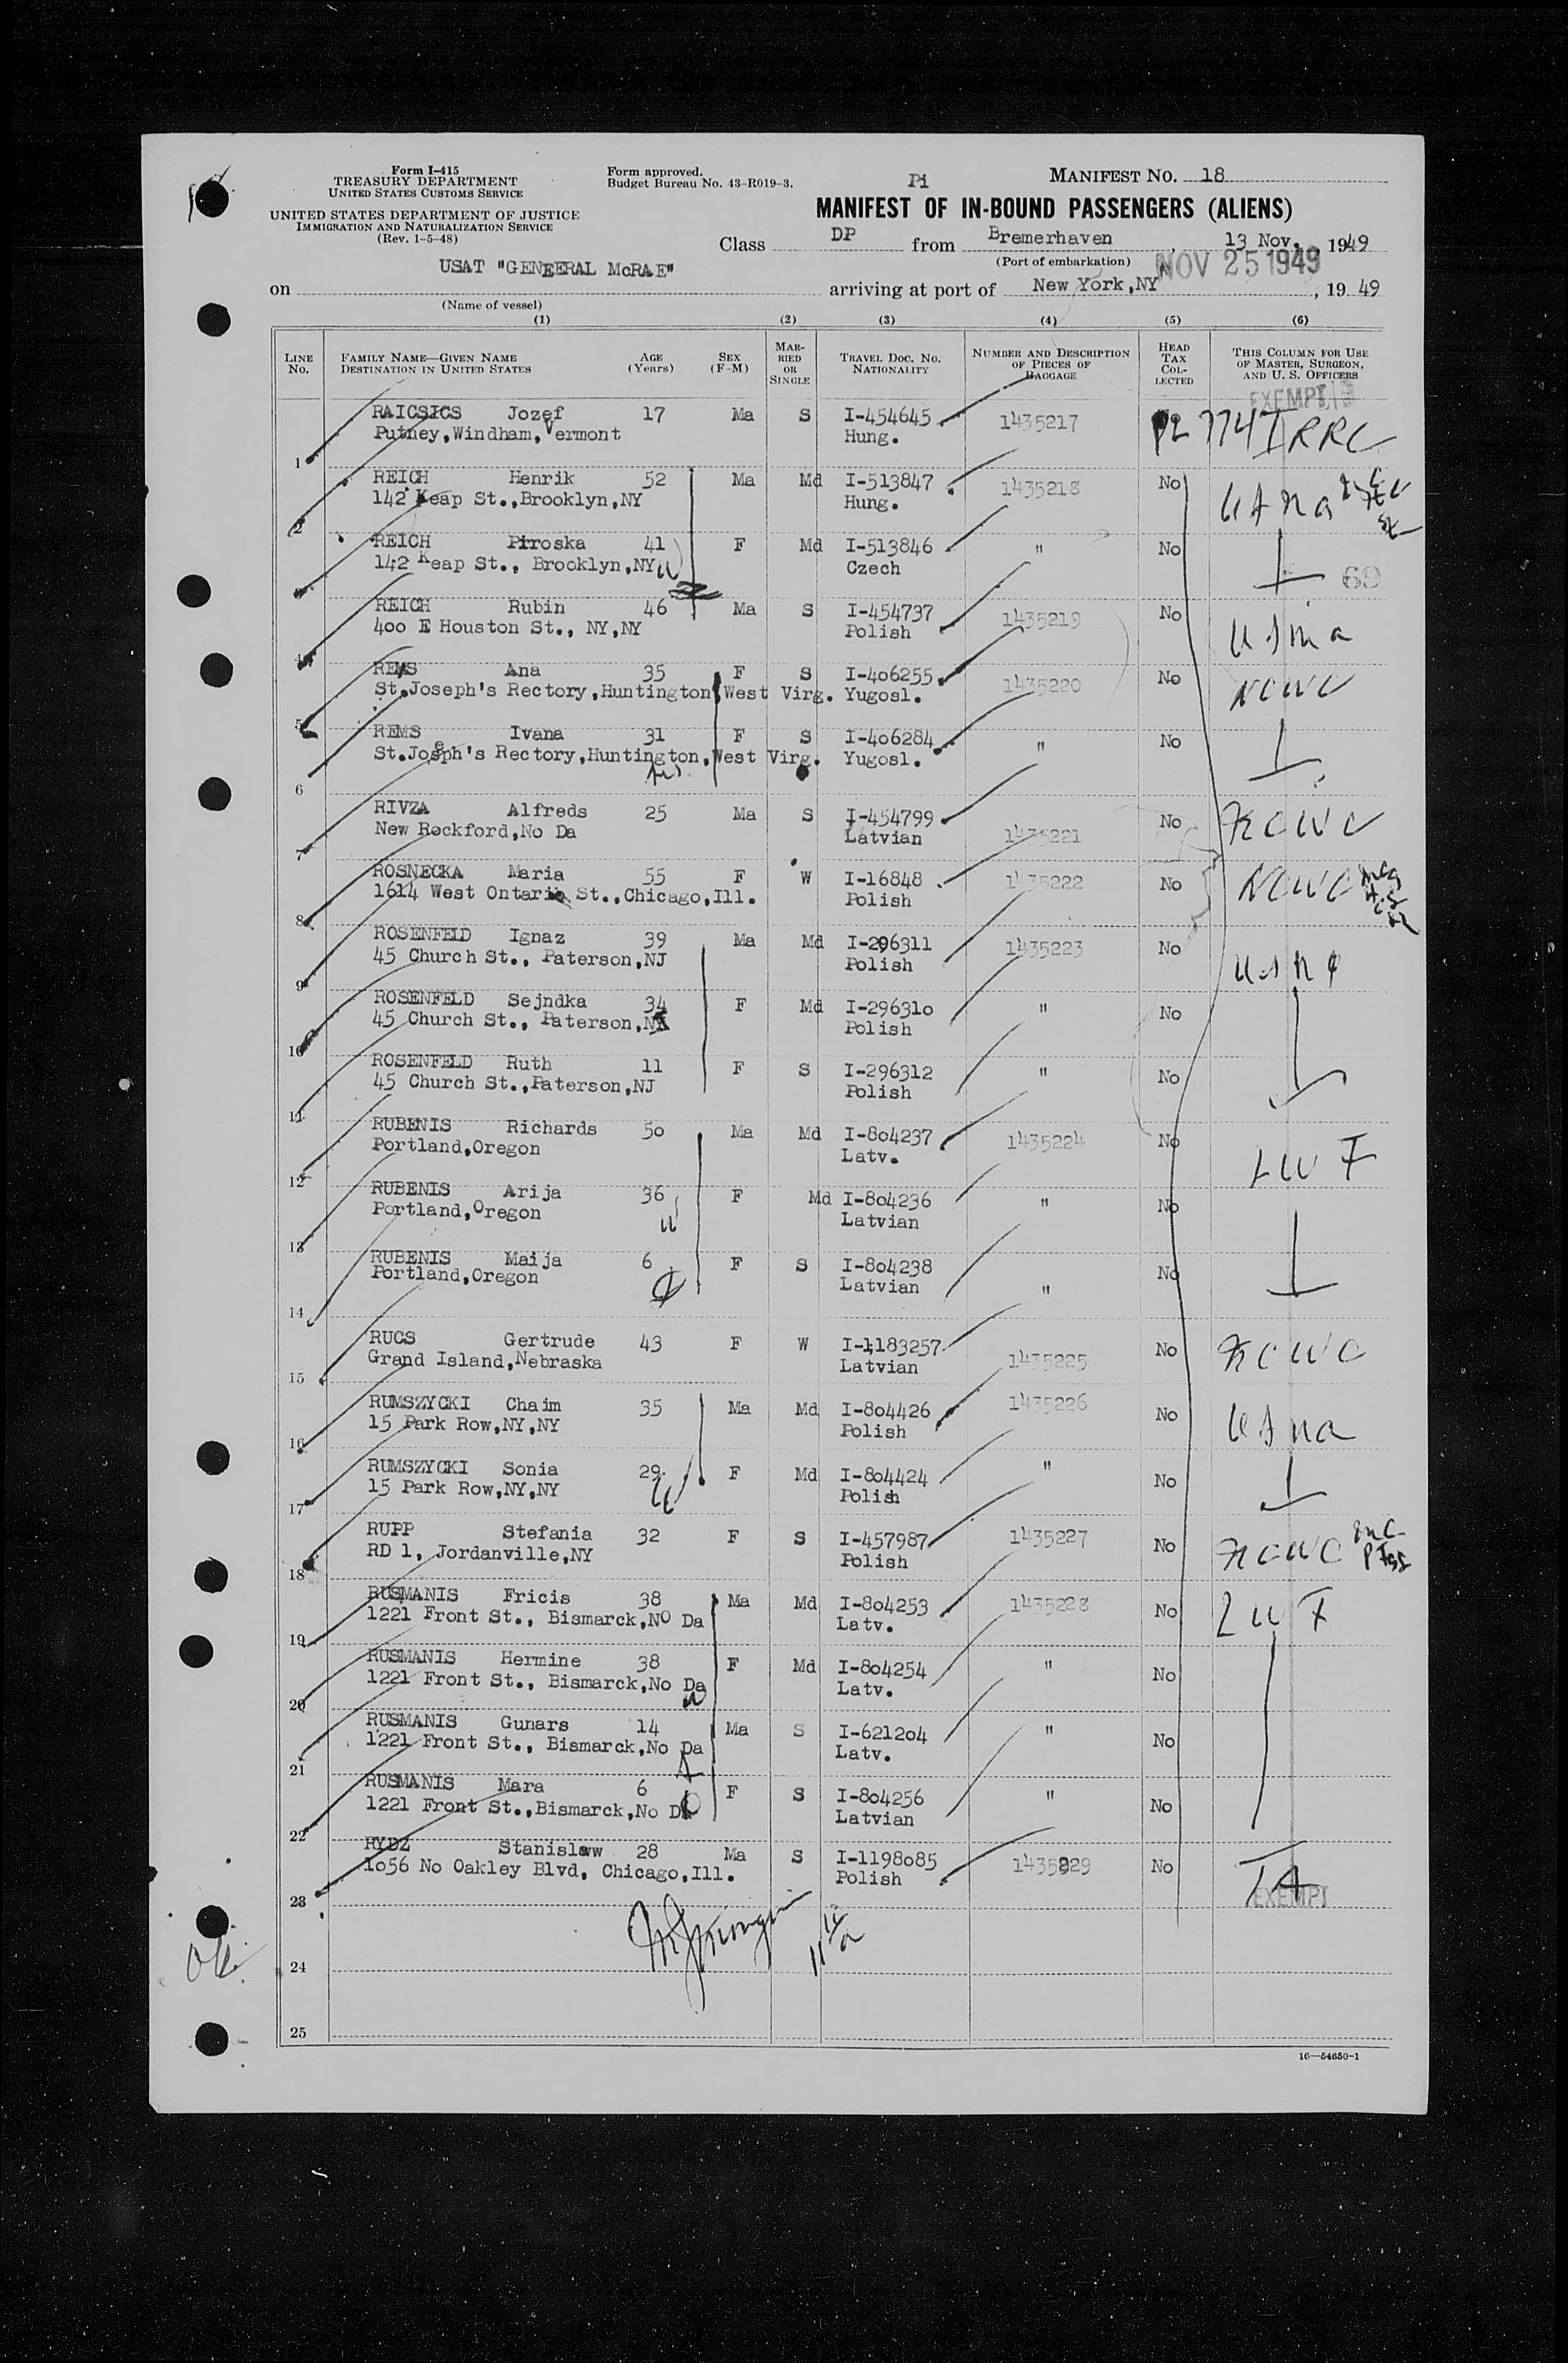 Form I-415
TREASURY DEPARTMENT
UNITED STATES CUSTOMS SERVICE
UNITED STATES DEPARTMENT OF JUSTICE
IMMIGRATION AND NATURALIZATION SERVICE
(Rev. 1-5-48)
Form approved.
Budget Bureau No. 43-R019-3.
Pi
MANIFEST No. 18
MANIFEST OF IN-BOUND PASSENGERS (ALIENS)
Class DP from Bremerhaven, 13 Nov, 1949
(Port of embarkation)
NOV 25 1949
on USAT "GENEERAL McRAE" arriving at port of New York,NY, 1949
(Name of vessel)
(1) (2) (3) (4) (5) (6)
LINE No. FAMILY NAME—GIVEN NAME DESTINATION IN UNITED STATES AGE (Years) SEX (F-M) MARRIED OR SINGLE TRAVEL DOC. NO. NATIONALITY NUMBER AND DESCRIPTION OF PIECES OF BAGGAGE HEAD TAX COLLECTED THIS COLUMN FOR USE OF MASTER, SURGEON, AND U. S. OFFICERS
EXEMPT
RAICSICS Jozef 17 Ma S I-454645 1435217 PL 774 IRRC
1 Putney,Windham,Vermont Hung.
REICH Henrik 52 Ma Md I-513847 1435218 No usna
2 142 Keap St.,Brooklyn,NY Hung.
REICH Piroska 41 F Md I-513846 " No
3 142 Keap St., Brooklyn,NY Czech 69
REICH Rubin 46 Ma S I-454737 1435219 No usna
4 400 E Houston St., NY,NY Polish
REMS Ana 35 F S I-406255 1435220 No NCWC
5 St.Joseph's Rectory,Huntington,West Virg. Yugosl.
REMS Ivana 31 F S I-406284 " No
6 St.Joseph's Rectory,Huntington,West Virg. Yugosl.
RIVZA Alfreds 25 Ma S I-454799 1435221 No NCWC
7 New Rockford,No Da Latvian
ROSNECKA Maria 55 F W I-16848 1435222 No NCWC
8 1614 West Ontario St.,Chicago,Ill. Polish
ROSENFELD Ignaz 39 Ma Md I-296311 1435223 No usna
9 45 Church St., Paterson,NJ Polish
ROSENFELD Sejndka 34 F Md I-296310 " No
10 45 Church St., Paterson,NJ Polish
ROSENFELD Ruth 11 F S I-296312 " No
11 45 Church St.,Paterson,NJ Polish
RUBENIS Richards 50 Ma Md I-804237 1435224 No LWF
12 Portland,Oregon Latv.
RUBENIS Arija 36 F Md I-804236 " No
13 Portland,Oregon Latvian
RUBENIS Maija 6 F S I-804238 " No
14 Portland,Oregon Latvian
RUCS Gertrude 43 F W I-1183257 1435225 No NCWC
15 Grand Island,Nebraska Latvian
RUMSZYCKI Chaim 35 Ma Md I-804426 1435226 No usna
16 15 Park Row,NY,NY Polish
RUMSZYCKI Sonia 29 F Md I-804424 " No
17 15 Park Row,NY,NY Polish
RUPP Stefania 32 F S I-457987 1435227 No NCWC
18 RD 1, Jordanville,NY Polish
RUSMANIS Fricis 38 Ma Md I-804253 1435228 No LWF
19 1221 Front St., Bismarck,NO Da Latv.
RUSMANIS Hermine 38 F Md I-804254 " No
20 1221 Front St., Bismarck,No Da Latv.
RUSMANIS Gunars 14 Ma S I-621204 " No
21 1221 Front St., Bismarck,No Da Latv.
RUSMANIS Mara 6 F S I-804256 " No
22 1221 Front St.,Bismarck,No Da Latvian
RYDZ Stanislaw 28 Ma S I-1198085 1435229 No
23 1056 No Oakley Blvd, Chicago,Ill. Polish EXEMPT
OK
24
25
16—54650-1